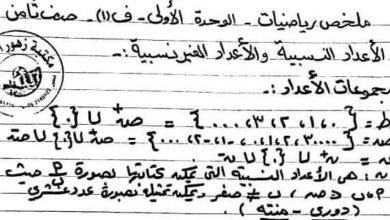 ملخص رياضيات - الوحدة الأولى - ف(١) - صف ثامن
الأعداد النسبية والأعداد الغير نسبية :-
مجموعات الأعداد :-
ط = {٠، ١، ٢، ٣، ...} = صہ⁺ ∪ {٠}
صہ = {...، ٣، ٢، ١، ٠، -١، -٢، ...} = صہ⁺ ∪ {٠} ∪ صہ⁻
ن = ن⁺ ∪ {٠} ∪ ن⁻
ن : هي الأعداد النسبية التي يمكن كتابتها بصورة م/ن حيث
م، ن ∈ صہ، ن ≠ صفر ويمكن تمثيله بصورة عدد عشري
(دوري - منته)
مكتبة زهور